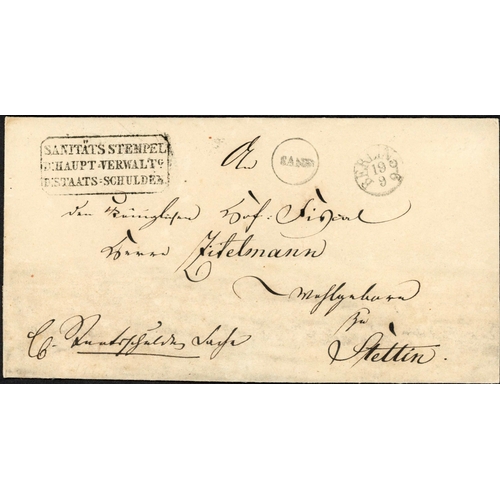 SANITÄTS STEMPEL
D:HAUPT-VERWALTG
D:STAATS-SCHULDEN
An
SANIT
BERLIN 5-6
19
9
den Königlichen Hof-Fiscal
Herrn Zitelmann
Wohlgeboren
zu
Stettin.
Staatsschulden Sache